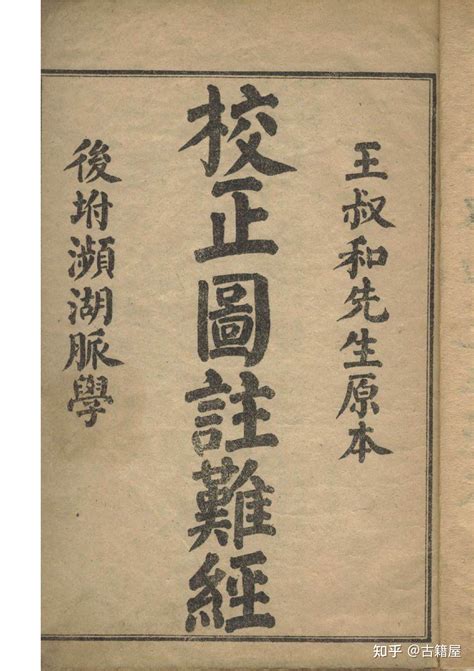 王叔和先生原本
校正圖註難經
後坿瀕湖脈學
知乎 @古籍屋